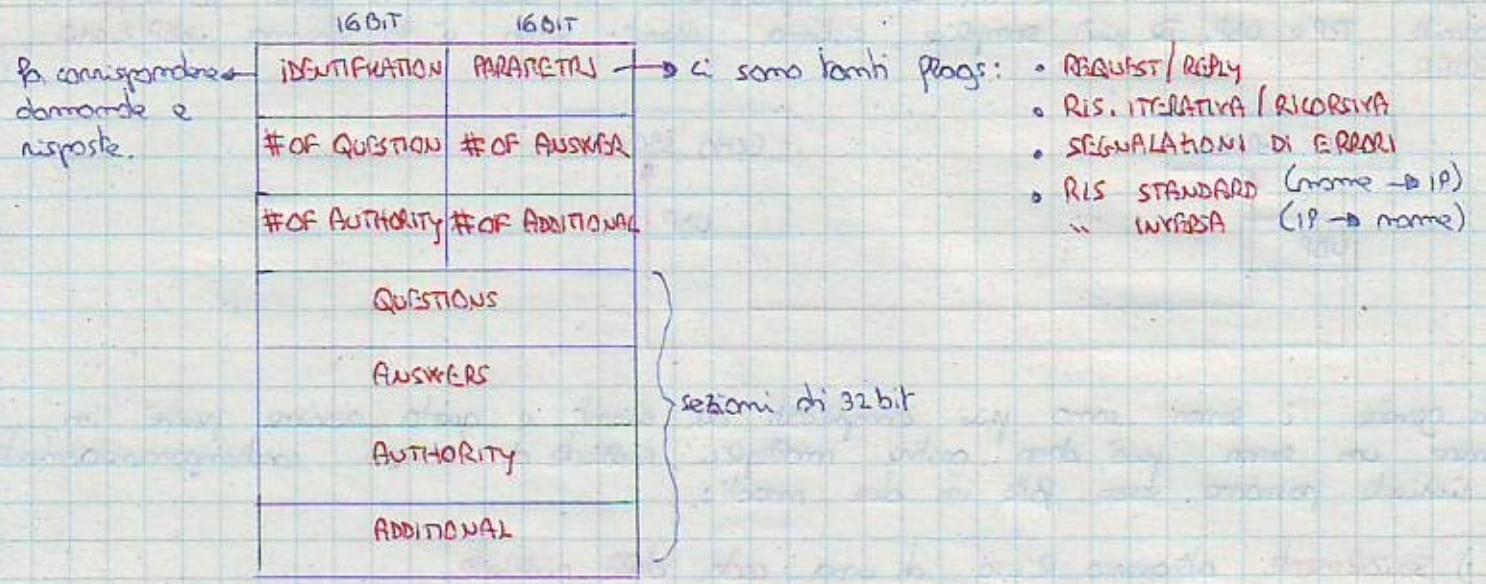 16 BIT 16 BIT
fa corrispondere
domande e
risposte.
IDENTIFICATION PARAMETRI
# OF QUESTION # OF ANSWER
# OF AUTHORITY # OF ADDITIONAL
QUESTIONS
ANSWERS
AUTHORITY
ADDITIONAL
sezioni di 32 bit
ci sono tanti flags:
• REQUEST / REPLY
• RIS. ITERATIVA / RICORSIVA
• SEGNALAZIONI DI ERRORI
• RIS STANDARD (nome → IP)
" INVERSA (IP → nome)